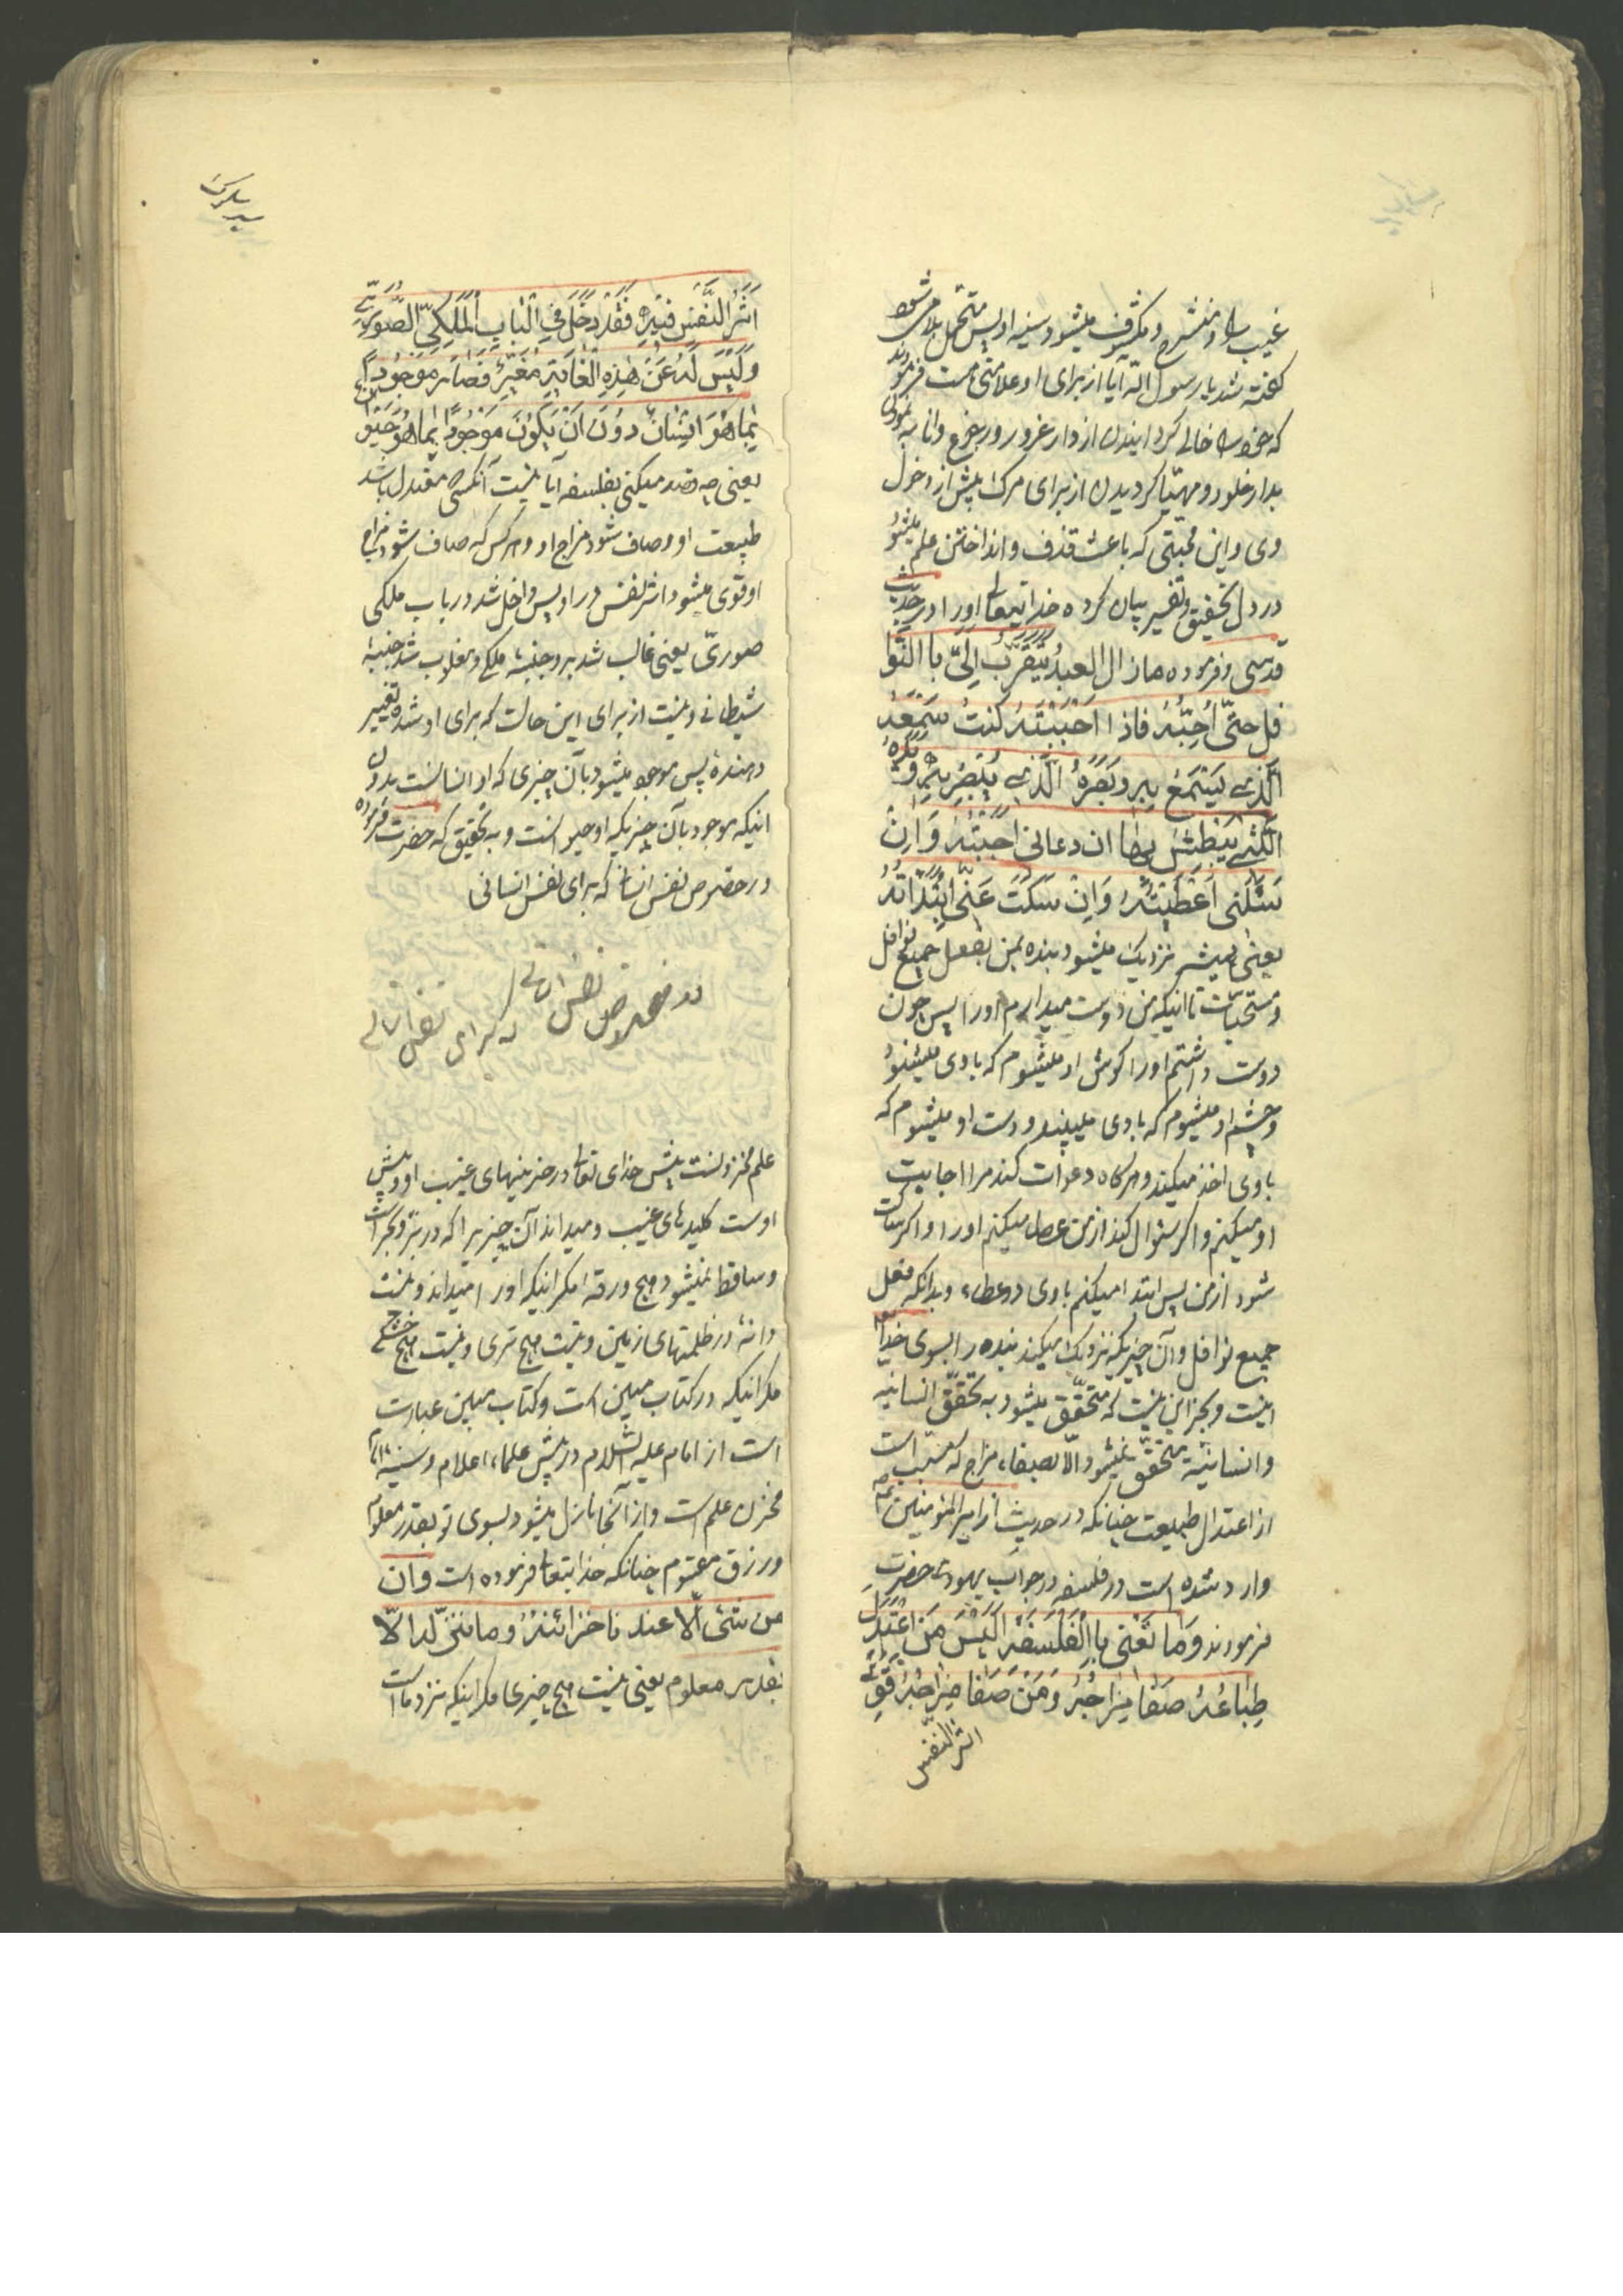 غیب را و منشرح و مکشوف میشود سینه او پس متحمل بلا میشود
گفته شد یا رسول الله آیا از برای او علامتی هست فرمودند
که خود را خالی گردانیدن از دار غرور و رجوع و انابه نمودن
بدار خلود و مهیا گردیدن از برای مرگ پیش از دخول
وی و این محبتی که باعث قذف و انداختن علم میشود
در دل بتحقیق و تفسیر بیان کرده خدایتعالی او را در حدیث
قدسی و فرموده ما زال العبد یتقرّب الیّ با النّوا
فل حتّی اُحِبّه فاذا اَحْبَبْتَه کنتُ سَمْعَهُ
الّذی یَسْتَمَعُ به و بَصَرَهُ الّذی یُبْصِرُ به و یَدَهُ
الّتی یَبْطِشُ بها ان دعانی اَجَبْتُه وَ اِنْ
سَئَلَنی اَعْطَیْتُهُ وَ اِنْ سَکَتَ عَنّی ابْتَدَاتُهُ
یعنی همیشه نزدیک میشود بنده بمن بفعل جمیع نوافل
و مستحبّات تا اینکه من دوست میدارم او را پس چون
دوست داشتم او را گوش او میشوم که با وی میشنود
و چشم او میشوم که با وی میبیند و دست او میشوم که
با وی اخذ میکند و هرگاه دعوات کند مرا اجابت
او میکنم و اگر سئوال کند از من عطا میکنم او را و اگر ساکت
شود از من پس ابتدا میکنم با وی در عطاء و بدانکه فعل
جمیع نوافل و آن چیزیکه نزدیک میکند بنده را بسوی خدا
اینست و بجز این نیست که متحقّق میشود به تحقّق انسانیه
و انسانیّه متحقّق نمیشود الّا بصفاء مزاج که مسبّب است
از اعتدال طبیعت چنانکه در حدیث از امیر المؤمنین ع
وارد شده است در فلسفه در جواب یهودی حضرت
فرمودند وَ مَا تَعْنی بِاالْفَلْسَفَه اَلَیْسَ مَنِ اعْتَدَلَ
طِبَاعُهُ صَفَا مِزَاجُهُ وَ مَنْ صَفَا مِزَاجُهُ قَوِیَ
اثر النّفس
سیر سلوک
اَثَرُ النَّفْسِ فیهِ فَقَدْ دَخَلَ فِی الْبَابِ الْمَلَکِیِّ الصُّورِیِّ
وَ لَیْسَ لَهُ عَنْ هٰذِهِ الْغَایَةِ مُغَیِّرٌ فَصَارَ مَوْجُودًا
بِمَا هُوَ اِنْسَانٌ دُونَ اَنْ یَکُونَ مَوْجُودًا بِمَا هُوَ حَیَوَانٌ
یعنی چه قصد میکنی بفلسفه آیا نیست آنکسی معتدل باشد
طبیعت او و صاف شود مزاج او و هر کس که صاف شود مزاج
او قوی میشود اثر نفس در او پس داخل شد در باب ملکی
صوریّ یعنی غالب شد بر او جنبهٔ ملکی و مغلوب شد جنبهٔ
شیطانی و نیست از برای این حالت که برای او شده تغییر
دهندهٔ پس موجود میشود بآن چیزی که او انسانست بدون
اینکه موجود بآن چیزیکه او حیوانست و به تحقیق که حضرت فرموده
در خصوص نفس انسان که برای نفس انسانی
در خصوص نفس انسانی
که برای نفس انسانی
علم مخزونست پیش خدای تعالی در خزینهای غیب او و پیش
اوست کلیدهای غیب و میداند آن چیزیرا که در برّ و بحر است
و ساقط نمیشود هیچ ورقه مگر اینکه او را میداند و نیست
دانهٔ در ظلمتهای زمین و نیست هیچ تری و نیست هیچ خشکی
مگر اینکه در کتاب مبین است و کتاب مبین عبارت
است از امام علیه السّلام در پیش علماء اعلام و سینهٔ امام
مخزن علم است و از آنجا نازل میشود بسوی تو بقدر معلوم
و رزق مقسوم چنانکه خدایتعالی فرموده است و ان
من شئ الّا عندنا خزائنهُ و ما ننزّله الّا
بقدر معلوم یعنی نیست هیچ چیزی مگر اینکه نزد ما است